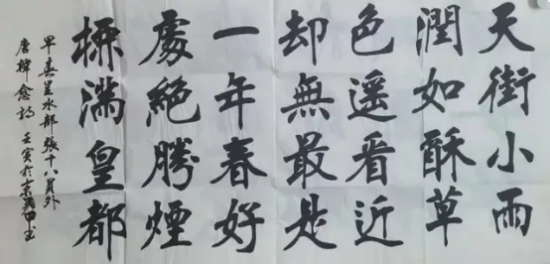 天街小雨
潤如酥草
色遥看近
却無最是
一年春好
處絕勝煙
滿皇都
早春呈水部張十八員外
唐韓愈詩 壬寅於京 書